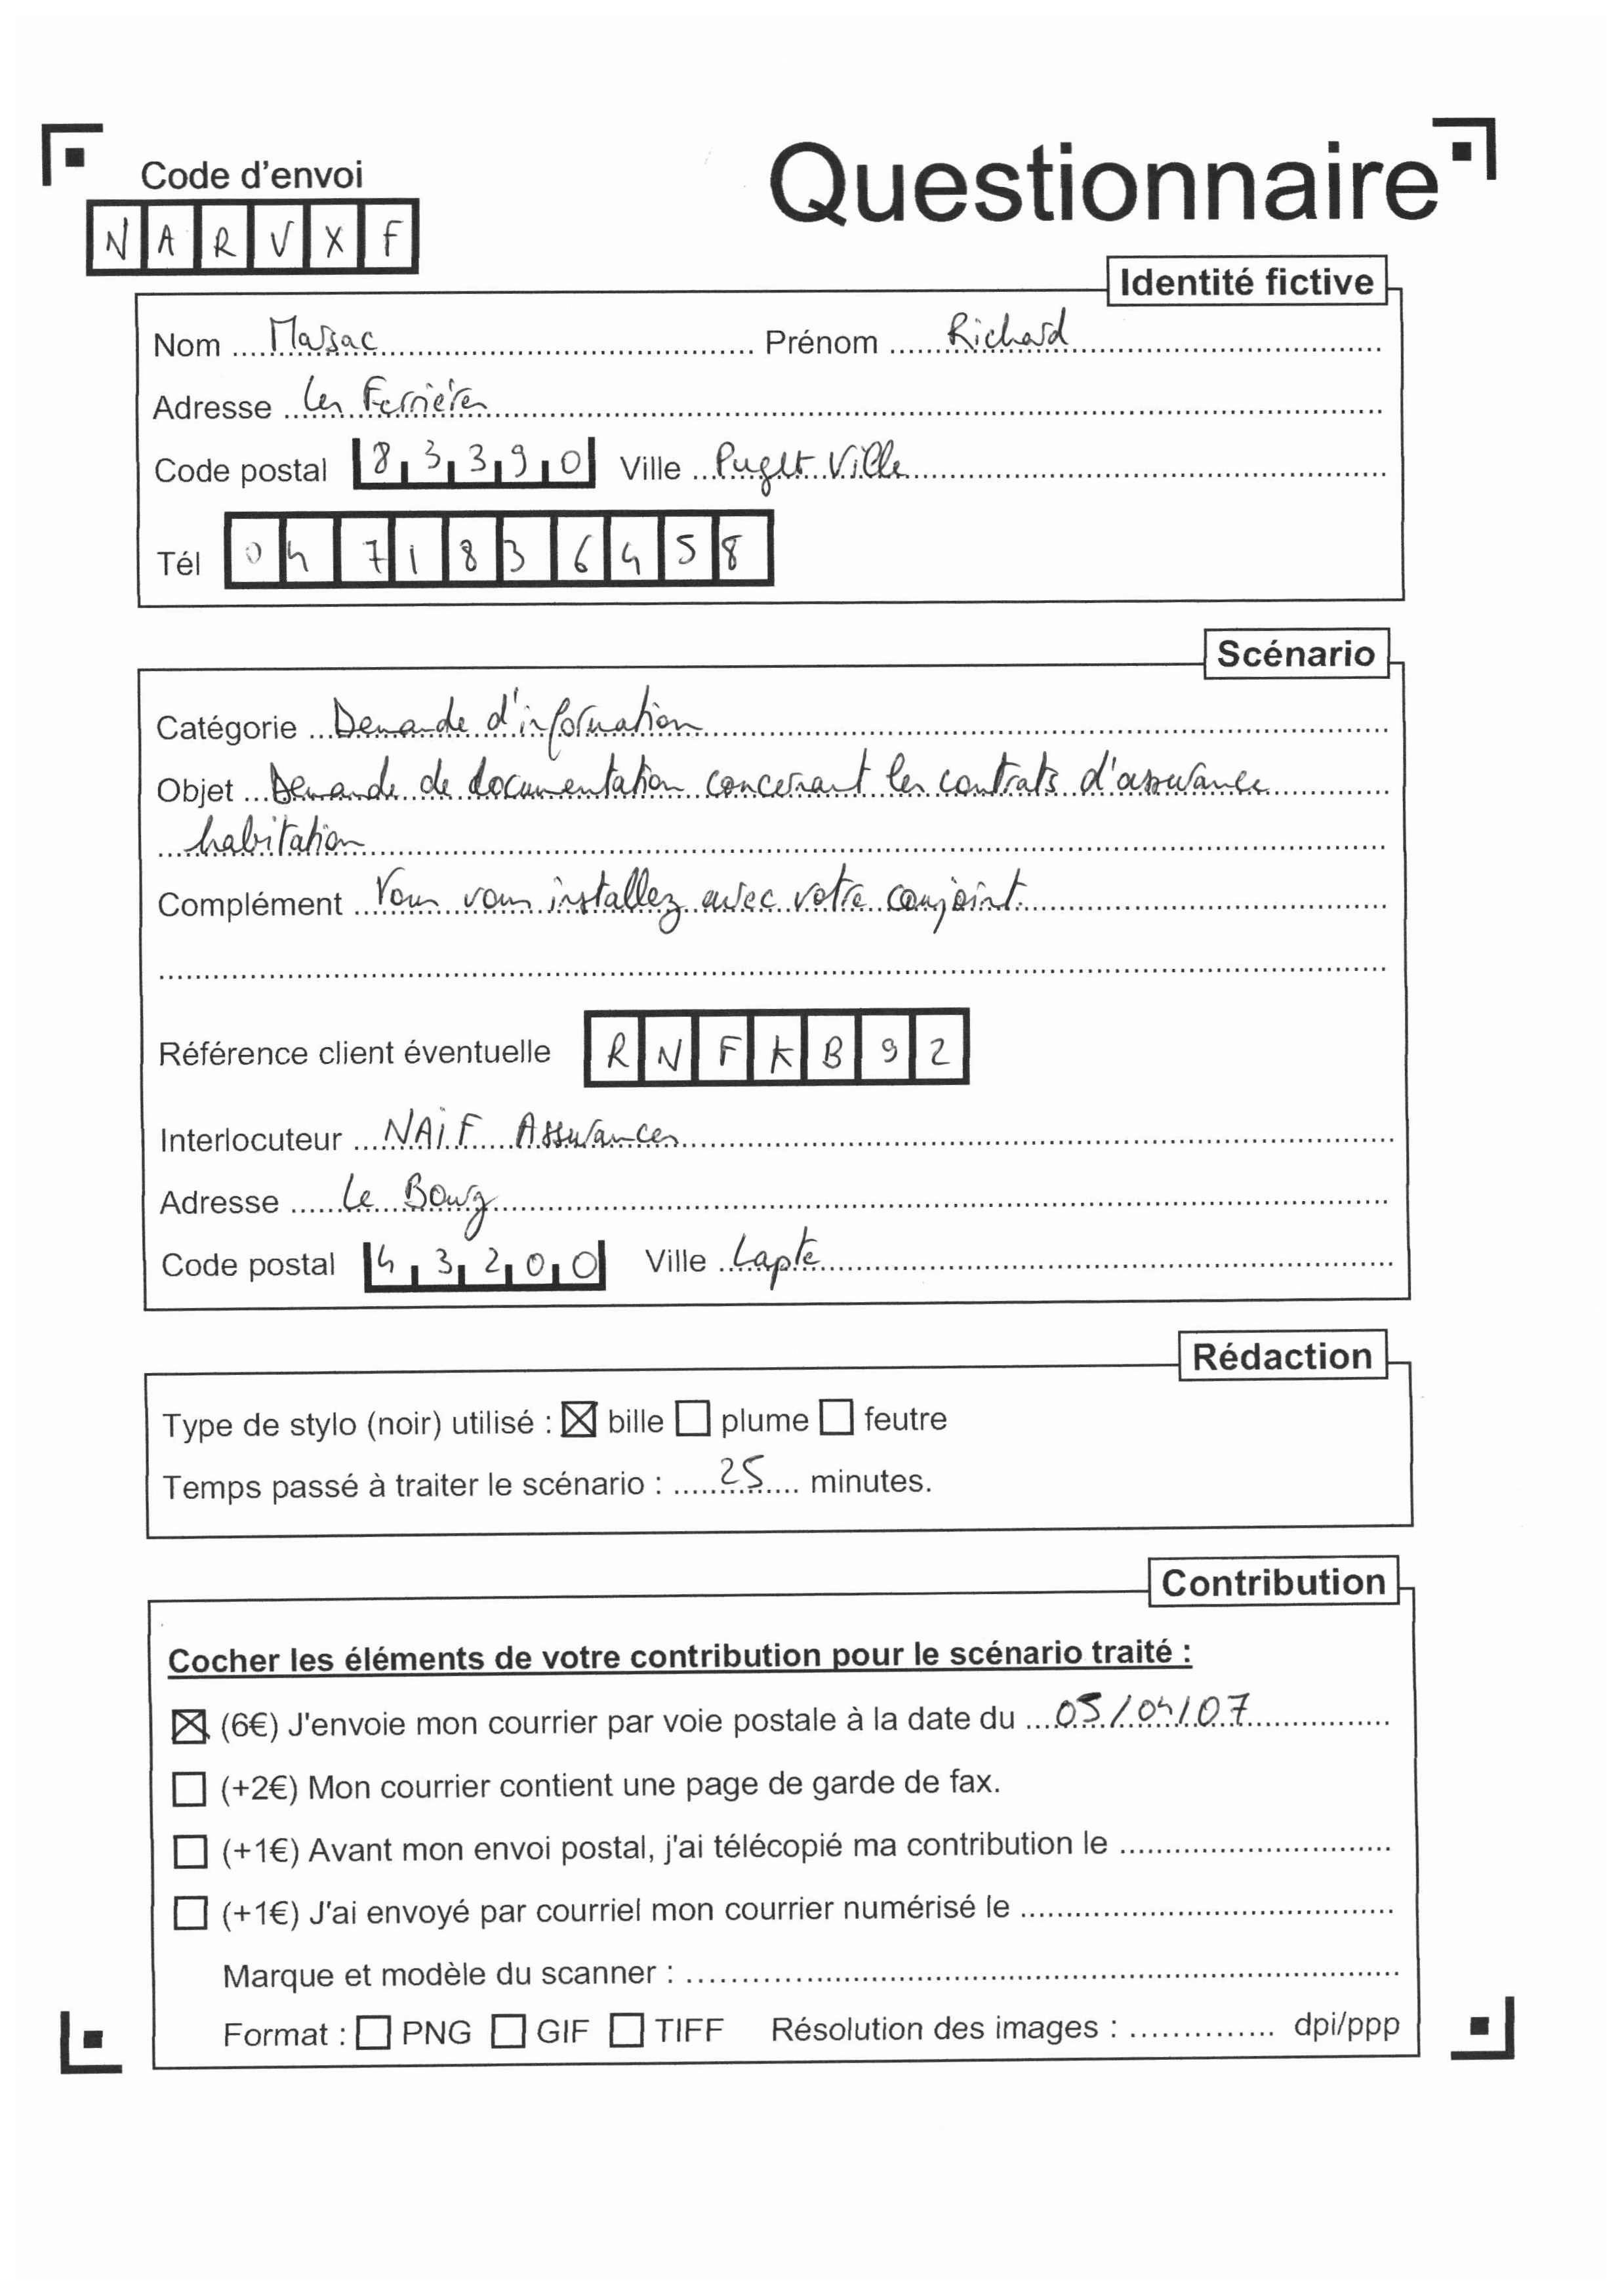 Questionnaire
Code d'envoi
N A R V X F
Identité fictive
Nom Marsac Prénom Richard
Adresse Les Ferrières
Code postal 8 3 3 9 0 Ville Puget Ville
Tél 0 4 7 1 8 3 6 4 5 8
Scénario
Catégorie Demande d'information
Objet Demande de documentation concernant les contrats d'assurance
habitation
Complément Vous vous installez avec votre conjoint.
Référence client éventuelle R N F K B 9 2
Interlocuteur NAIF Assurances
Adresse Le Bourg
Code postal 4 3 2 0 0 Ville Lapte
Rédaction
Type de stylo (noir) utilisé : ☒ bille ☐ plume ☐ feutre
Temps passé à traiter le scénario : 25 minutes.
Contribution
Cocher les éléments de votre contribution pour le scénario traité :
☒ (6€) J'envoie mon courrier par voie postale à la date du 05/04/07
☐ (+2€) Mon courrier contient une page de garde de fax.
☐ (+1€) Avant mon envoi postal, j'ai télécopié ma contribution le
☐ (+1€) J'ai envoyé par courriel mon courrier numérisé le
Marque et modèle du scanner :
Format : ☐ PNG ☐ GIF ☐ TIFF Résolution des images : dpi/ppp